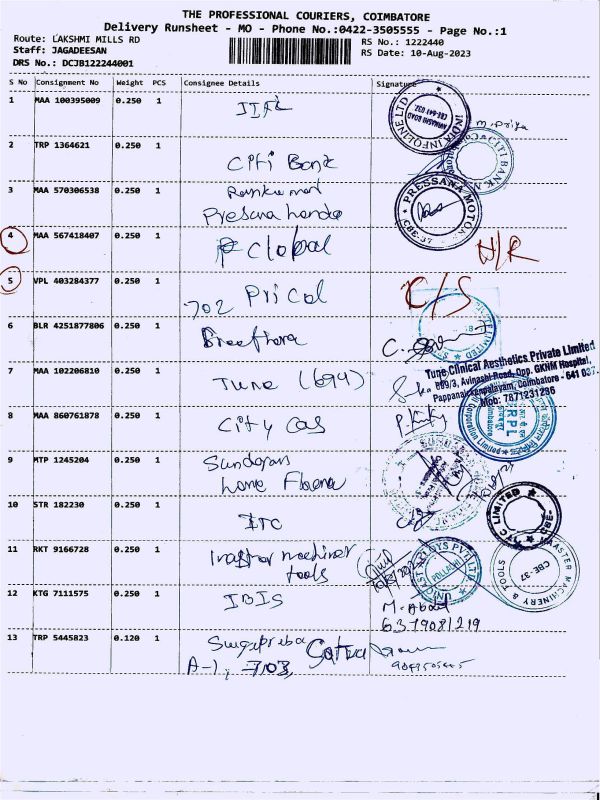 THE PROFESSIONAL COURIERS, COIMBATORE
Delivery Runsheet - MO - Phone No.:0422-3505555 - Page No.:1
Route: LAKSHMI MILLS RD
Staff: JAGADEESAN
DRS No.: DCJB122244001
RS No.: 1222440
RS Date: 10-Aug-2023
S No Consignment No Weight PCS Consignee Details Signature
1 MAA 100395009 0.250 1 IIFL
INDIA INFOLINE LTD
AVINASHI ROAD
CBE-641 037.
M. Priya
2 TRP 1364621 0.250 1 Citi Bank
CITI BANK N.
3 MAA 570306538 0.250 1
Pressana honda
PRESSANA MOTOR
4 MAA 567418407 0.250 1 Global
N/R
5 VPL 403284377 0.250 1 702 Pricol
C/S
6 BLR 4251877806 0.250 1
7 MAA 102206810 0.250 1 Tune (694)
Tune Clinical Aesthetics Private Limited
809/3, Avinashi Road, Opp. GKNM Hospital,
Pappanaickenpalayam, Coimbatore - 641 037.
Mob: 7871231286
8 MAA 860761878 0.250 1 City Gas
IRPL
9 MTP 1245204 0.250 1
10 STR 182230 0.250 1 ITC
LIMITED
11 RKT 9166728 0.250 1
tools
POLLACHI
MASTER MACHINERY & TOOLS
CBE-37
12 KTG 7111575 0.250 1 IBIS
M. Abdul
6379081219
13 TRP 5445823 0.120 1
A-1, 703,